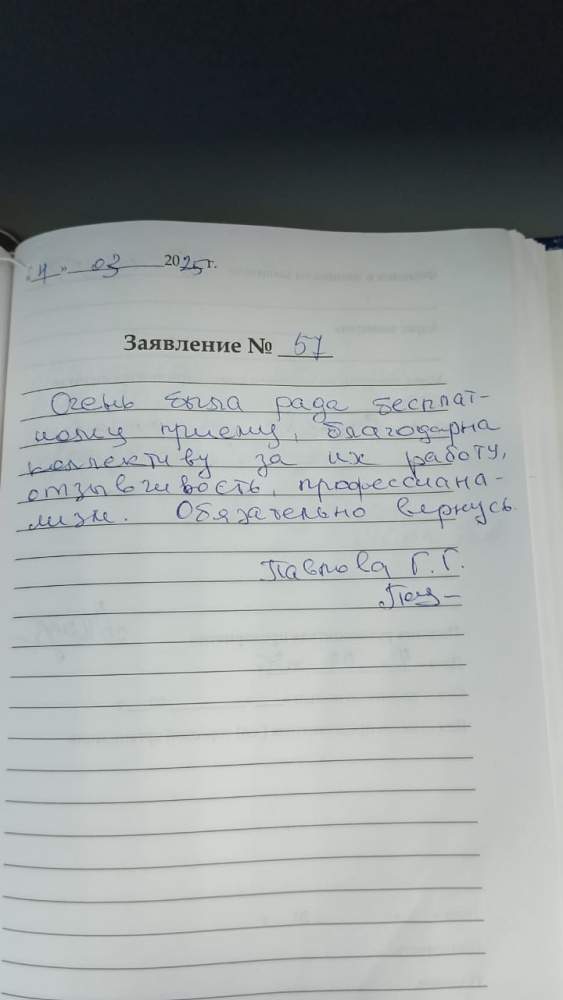 «4» 03 2025г.
Заявление № 57
Очень была рада бесплат-
ному приему, благодарна
коллективу за их работу,
отзывчивость, профессиана-
лизм. Обязательно вернусь.
Павлова Г.Г.